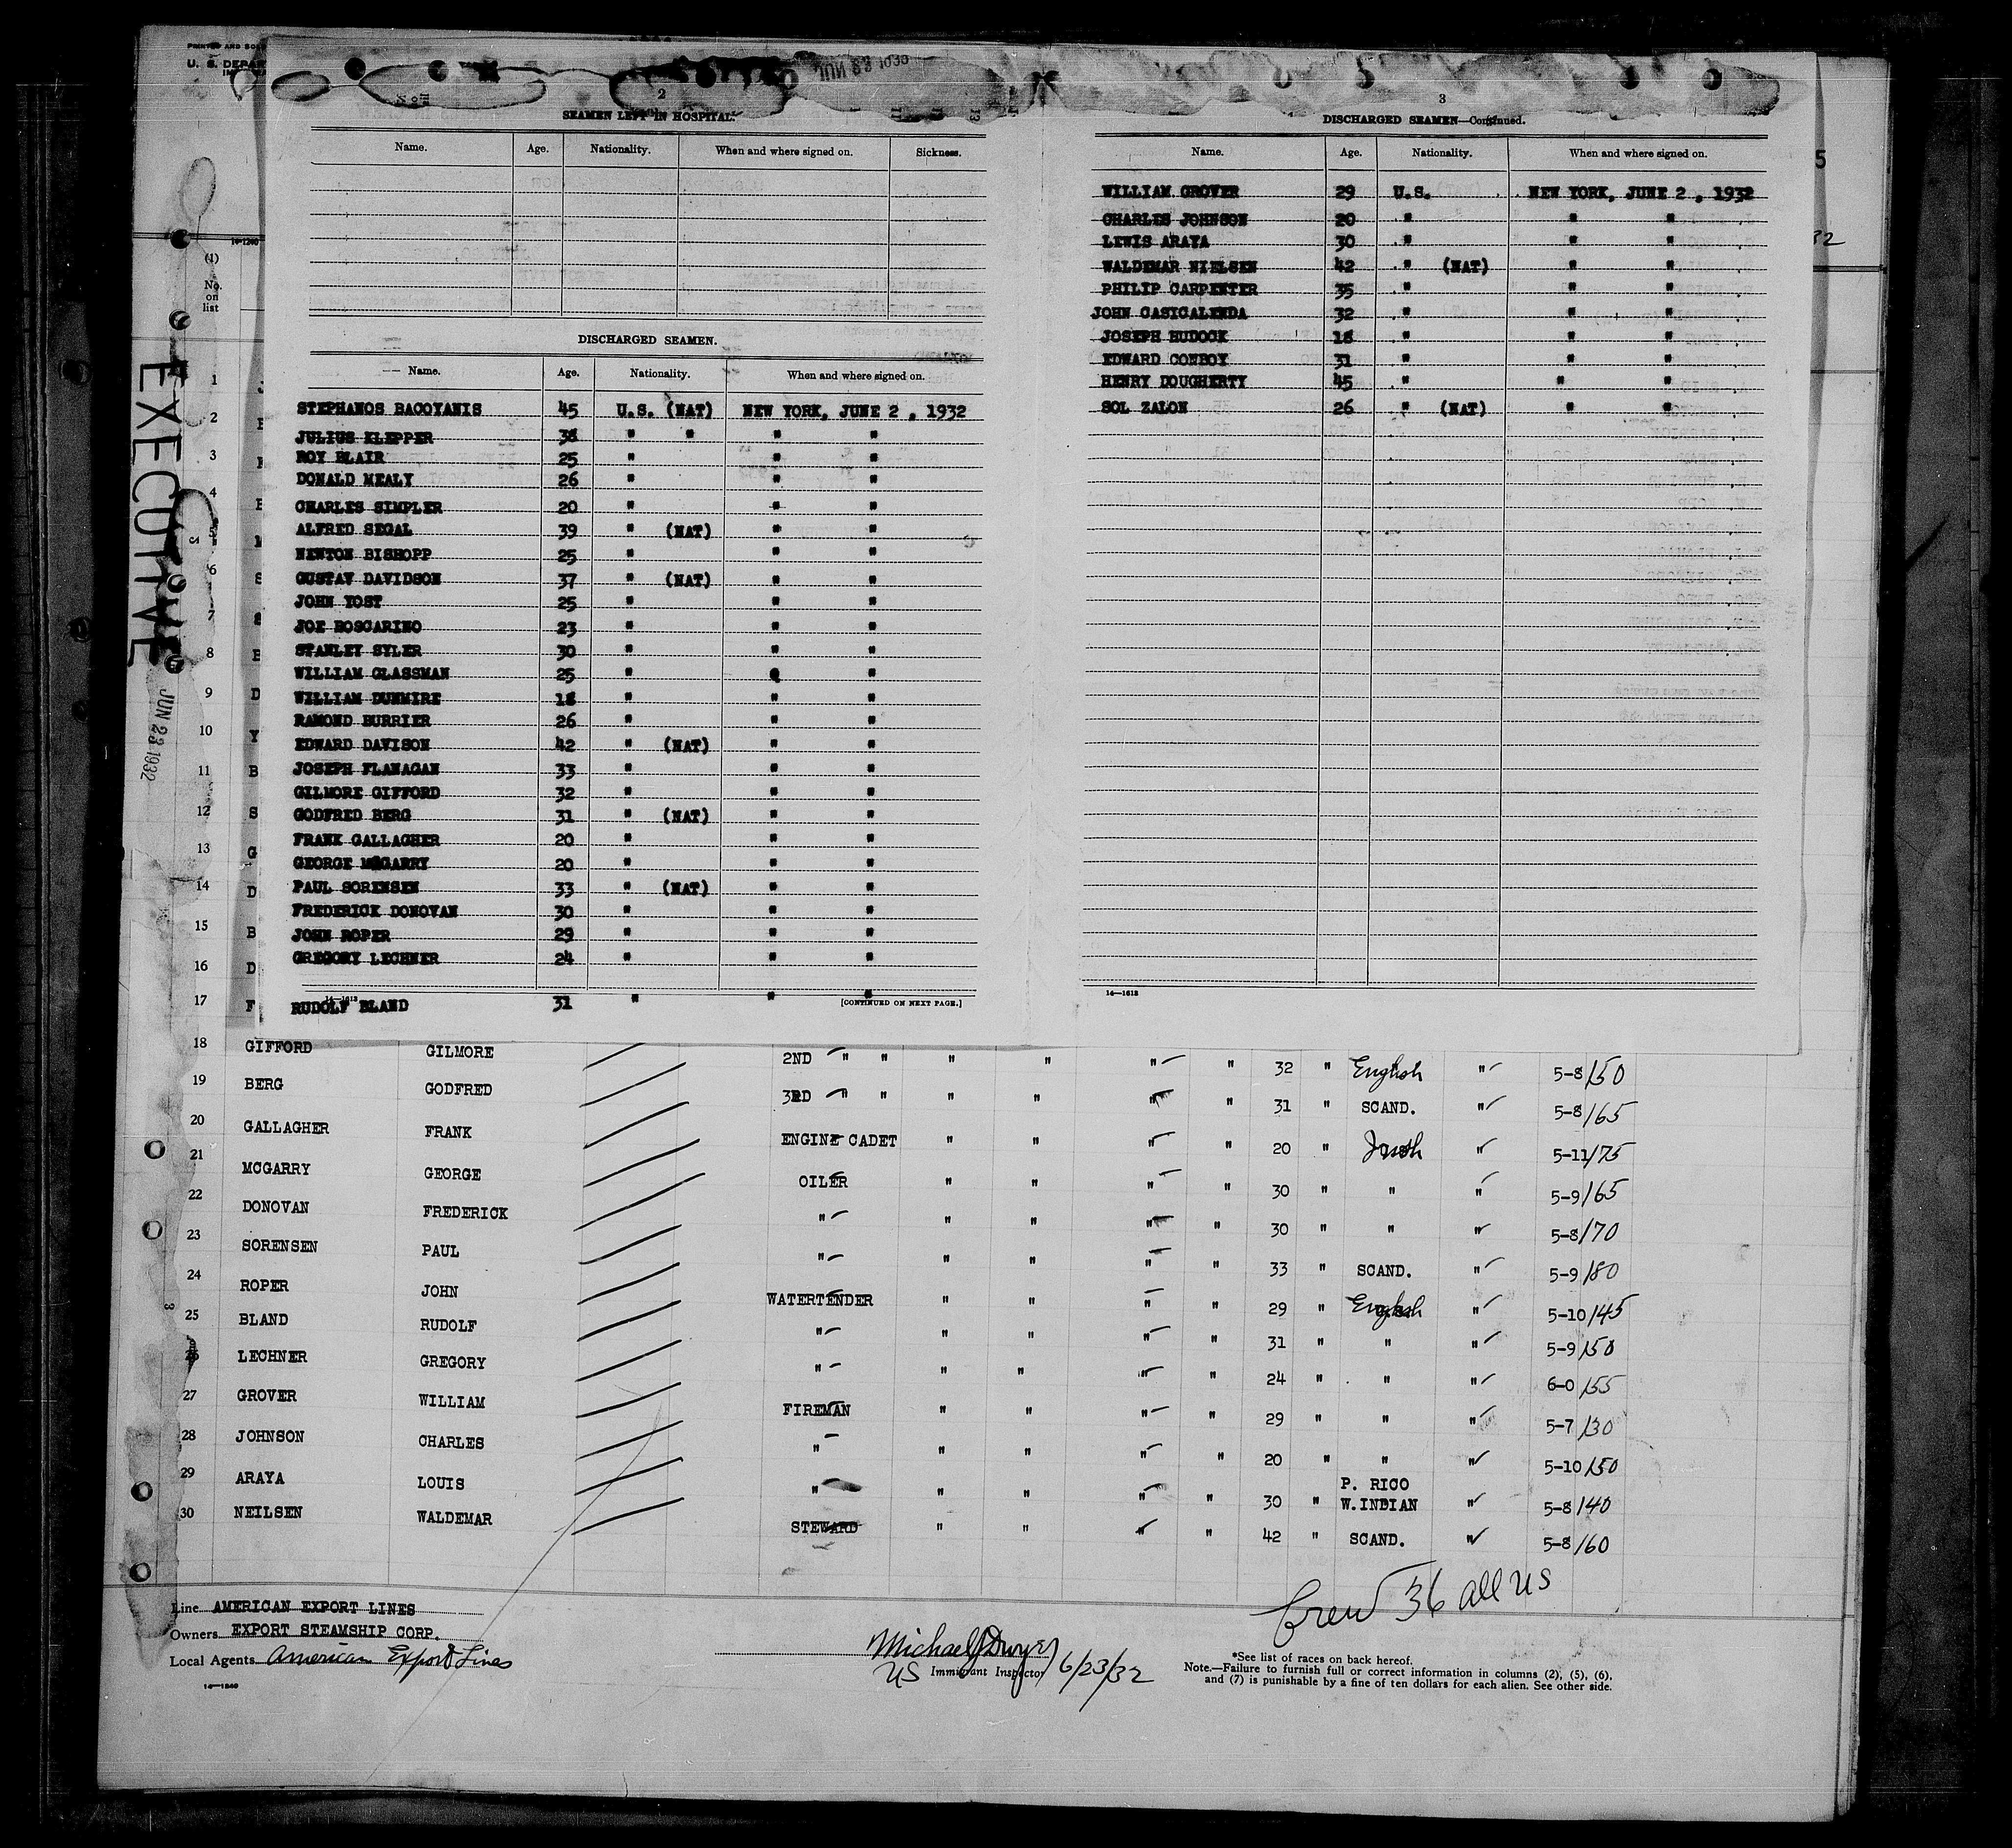 PRINTED AND SOLD
U. S. DEPAR
JUN 23 1932
2
SEAMEN LEFT IN HOSPITAL.
Name. Age. Nationality. When and where signed on. Sickness.
DISCHARGED SEAMEN.
Name. Age. Nationality. When and where signed on.
STEPHANOS BACOYANIS 45 U.S. (NAT) NEW YORK, JUNE 2, 1932
JULIUS KLEPPER 38 " " " "
ROY BLAIR 25 " " "
DONALD MEALY 26 " " "
CHARLES SIMPLER 20 " " "
ALFRED SEGAL 39 " (NAT) " "
NEWTON BISHOPP 25 " " "
GUSTAV DAVIDSON 37 " (NAT) " "
JOHN YOST 25 " " "
JOE BOSCARINO 23 " " "
STANLEY SYLER 30 " " "
WILLIAM GLASSMAN 25 " "
WILLIAM DUNMIRE 18 " " "
RAMOND BURRIER 26 " " "
EDWARD DAVISON 42 " (NAT) " "
JOSEPH FLANAGAN 33 " " "
GILMORE GIFFORD 32 " " "
GODFRED BERG 31 " (NAT) " "
FRANK GALLAGHER 20 " " "
GEORGE MCGARRY 20 " " "
PAUL SORENSEN 33 " (NAT) " "
FREDERICK DONOVAN 30 " " "
JOHN ROPER 29 " " "
GREGORY LECHNER 24 " " "
RUDOLF BLAND 31 " " "
14—1613 [CONTINUED ON NEXT PAGE.]
3
DISCHARGED SEAMEN—Continued.
Name. Age. Nationality. When and where signed on.
WILLIAM GROVER 29 U.S. NEW YORK, JUNE 2, 1932
CHARLES JOHNSON 20 " " "
LEWIS ARAYA 30 " " "
WALDEMAR NIELSEN 42 " (NAT) " "
PHILIP CARPENTER 35 " " "
JOHN CASICALENDA 32 " " "
JOSEPH HUDOCK 18 " " "
EDWARD CONBOY 31 " " "
HENRY DOUGHERTY 45 " " "
SOL ZALON 26 " (NAT) " "
14—1613
5
32
14-1240
(1)
No.
on
list
EXECUTIVE
JUN 23 1932
1
2
3
4
5
6
7
8
9 D
10 Y
11 B
12 S
13 G
14 D
15 B
16 D
17 F
18 GIFFORD GILMORE 2ND " " " " " " 32 " English " 5-8 150
19 BERG GODFRED 3RD " " " " " " 31 " SCAND. " 5-8 165
20 GALLAGHER FRANK ENGINE CADET " " " " 20 " Irish " 5-11 175
21 MCGARRY GEORGE OILER " " " " 30 " " " 5-9 165
22 DONOVAN FREDERICK " " " " " 30 " " " 5-8 170
23 SORENSEN PAUL " " " " " 33 " SCAND. " 5-9 180
24 ROPER JOHN WATERTENDER " " " " 29 " English " 5-10 145
25 BLAND RUDOLF " " " " " 31 " " " 5-9 150
26 LECHNER GREGORY " " " " " 24 " " " 6-0 155
27 GROVER WILLIAM FIREMAN " " " " 29 " " " 5-7 130
28 JOHNSON CHARLES " " " " " 20 " " " 5-10 150
29 ARAYA LOUIS " " " " " 30 " P. RICO W.INDIAN " 5-8 140
30 NEILSEN WALDEMAR STEWARD " " " " 42 " SCAND. " 5-8 160
Crew 36 all US
Line AMERICAN EXPORT LINES
Owners EXPORT STEAMSHIP CORP.
Local Agents American Export Lines
14—1240
Michael J Dwyer
US Immigrant Inspector 6/23/32
*See list of races on back hereof.
Note.—Failure to furnish full or correct information in columns (2), (5), (6),
and (7) is punishable by a fine of ten dollars for each alien. See other side.